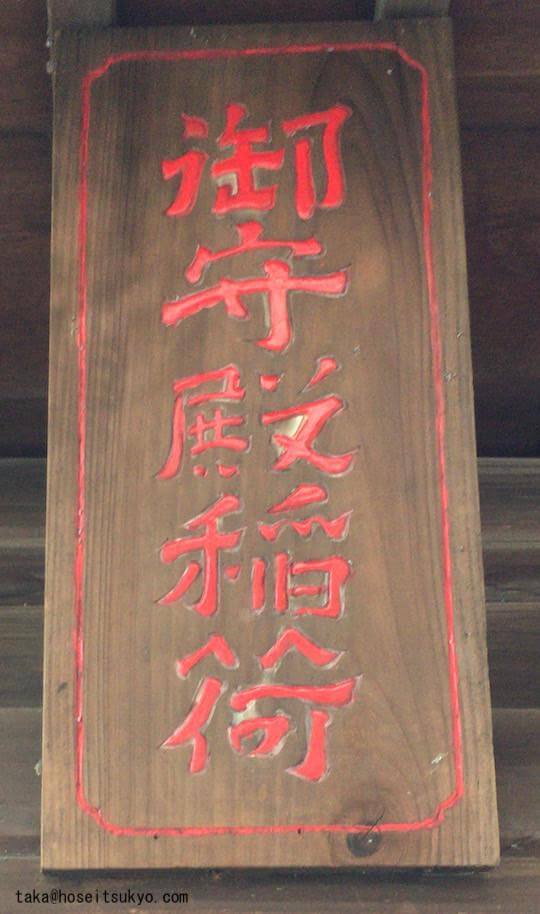 御守殿稲荷
taka@hoseitsukyo.com